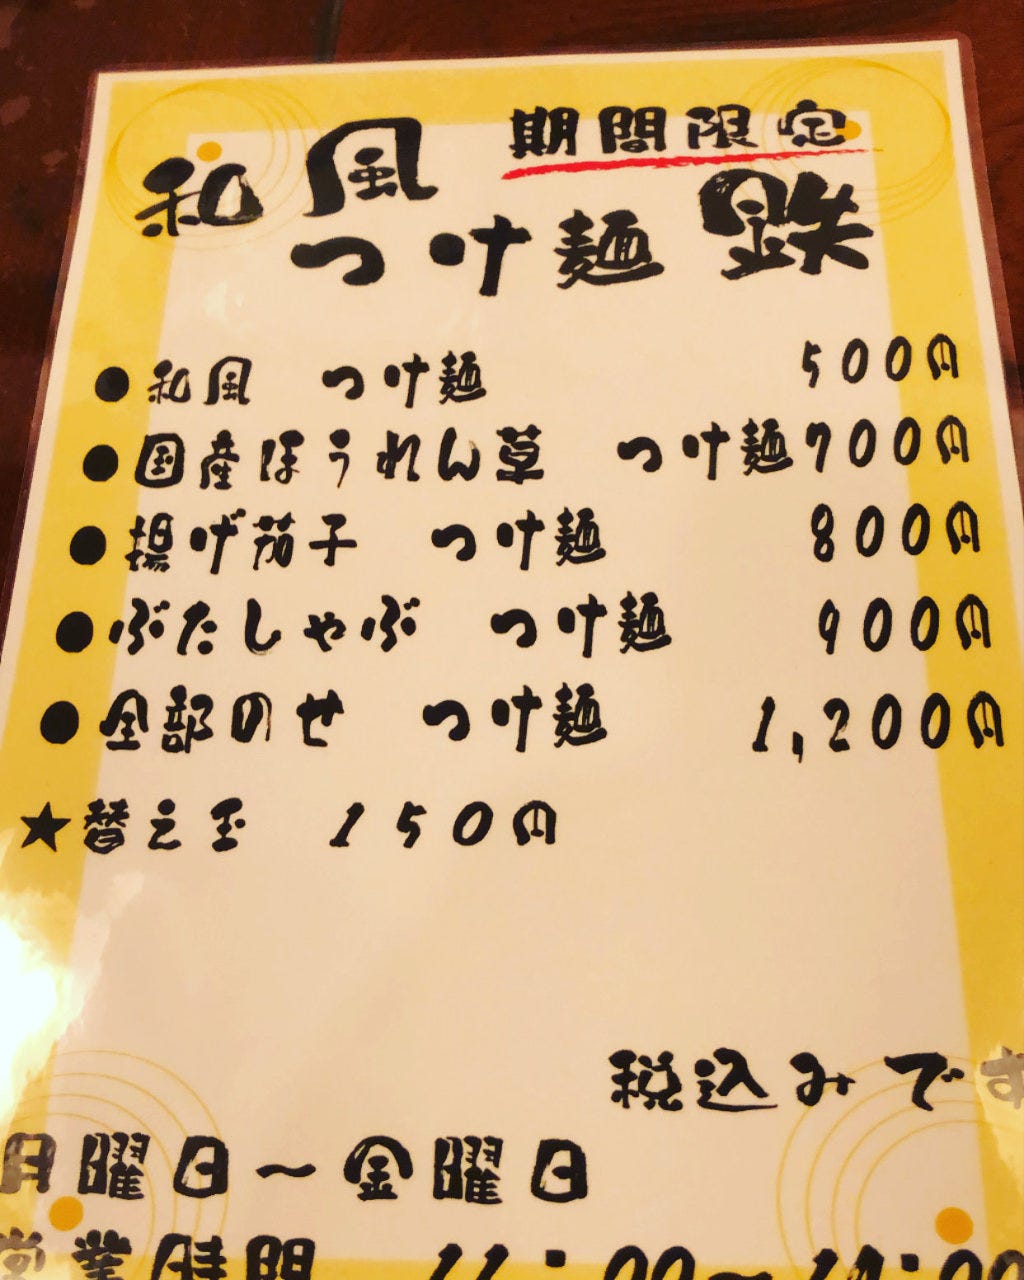 期間限定
和風
つけ麺 鉄
●和風 つけ麺 500円
●国産ほうれん草 つけ麺700円
●揚げ茄子 つけ麺 800円
●ぶたしゃぶ つけ麺 900円
●全部のせ つけ麺 1,200円
★替え玉 150円
税込みです
月曜日～金曜日
営業時間 11:00～14:00